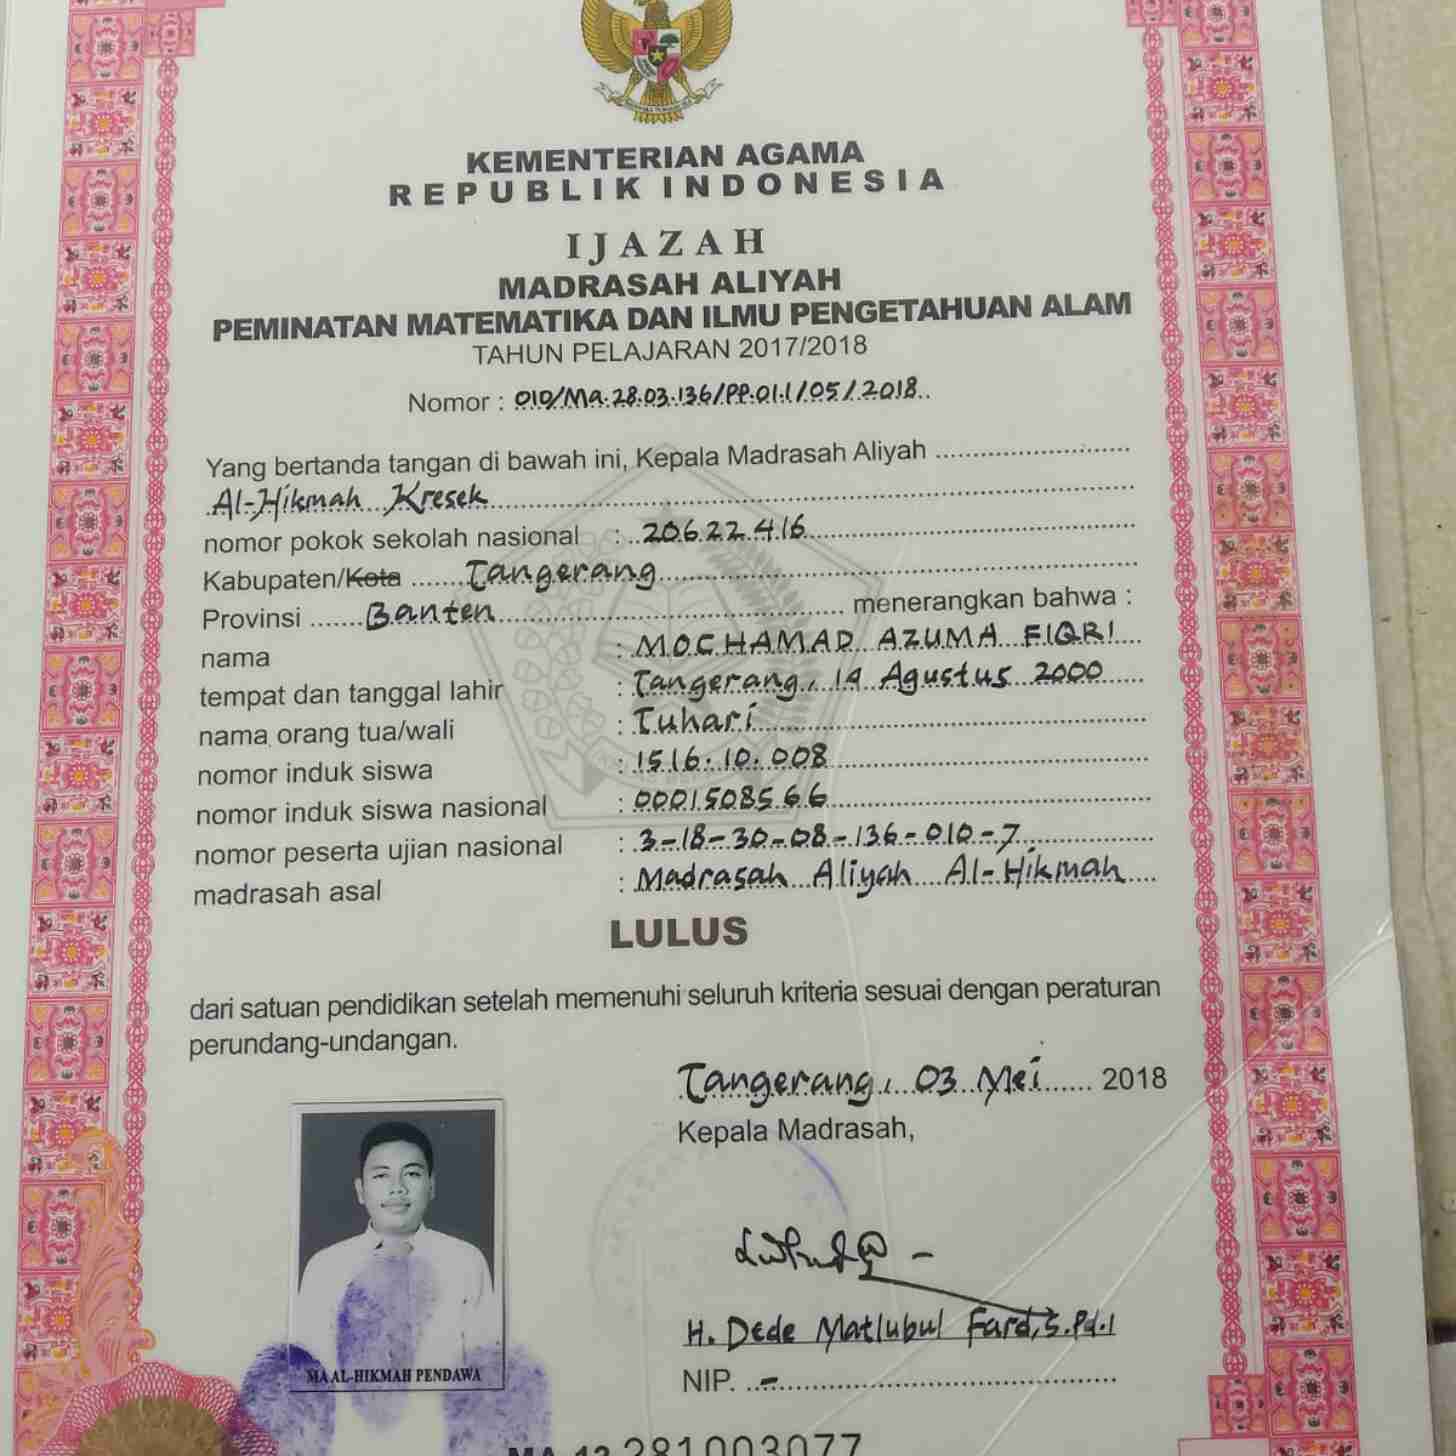 KEMENTERIAN AGAMA
REPUBLIK INDONESIA
IJAZAH
MADRASAH ALIYAH
PEMINATAN MATEMATIKA DAN ILMU PENGETAHUAN ALAM
TAHUN PELAJARAN 2017/2018
Nomor : 010/Ma.28.03.136/PP.01.1/05/2018
Yang bertanda tangan di bawah ini, Kepala Madrasah Aliyah
Al-Hikmah Kresek
nomor pokok sekolah nasional : 20622416
Kabupaten/Kota Tangerang
Provinsi Banten menerangkan bahwa :
nama : MOCHAMAD AZUMA FIQRI
tempat dan tanggal lahir : Tangerang, 19 Agustus 2000
nama orang tua/wali : Tuhari
nomor induk siswa : 1516.10.008
nomor induk siswa nasional : 0001508566
nomor peserta ujian nasional : 3-18-30-08-136-010-7
madrasah asal : Madrasah Aliyah Al-Hikmah
LULUS
dari satuan pendidikan setelah memenuhi seluruh kriteria sesuai dengan peraturan
perundang-undangan.
Tangerang, 03 Mei 2018
Kepala Madrasah,
H. Dede Matlubul Fard, S.Pd.I
NIP. -
MA AL-HIKMAH PENDAWA
281003077